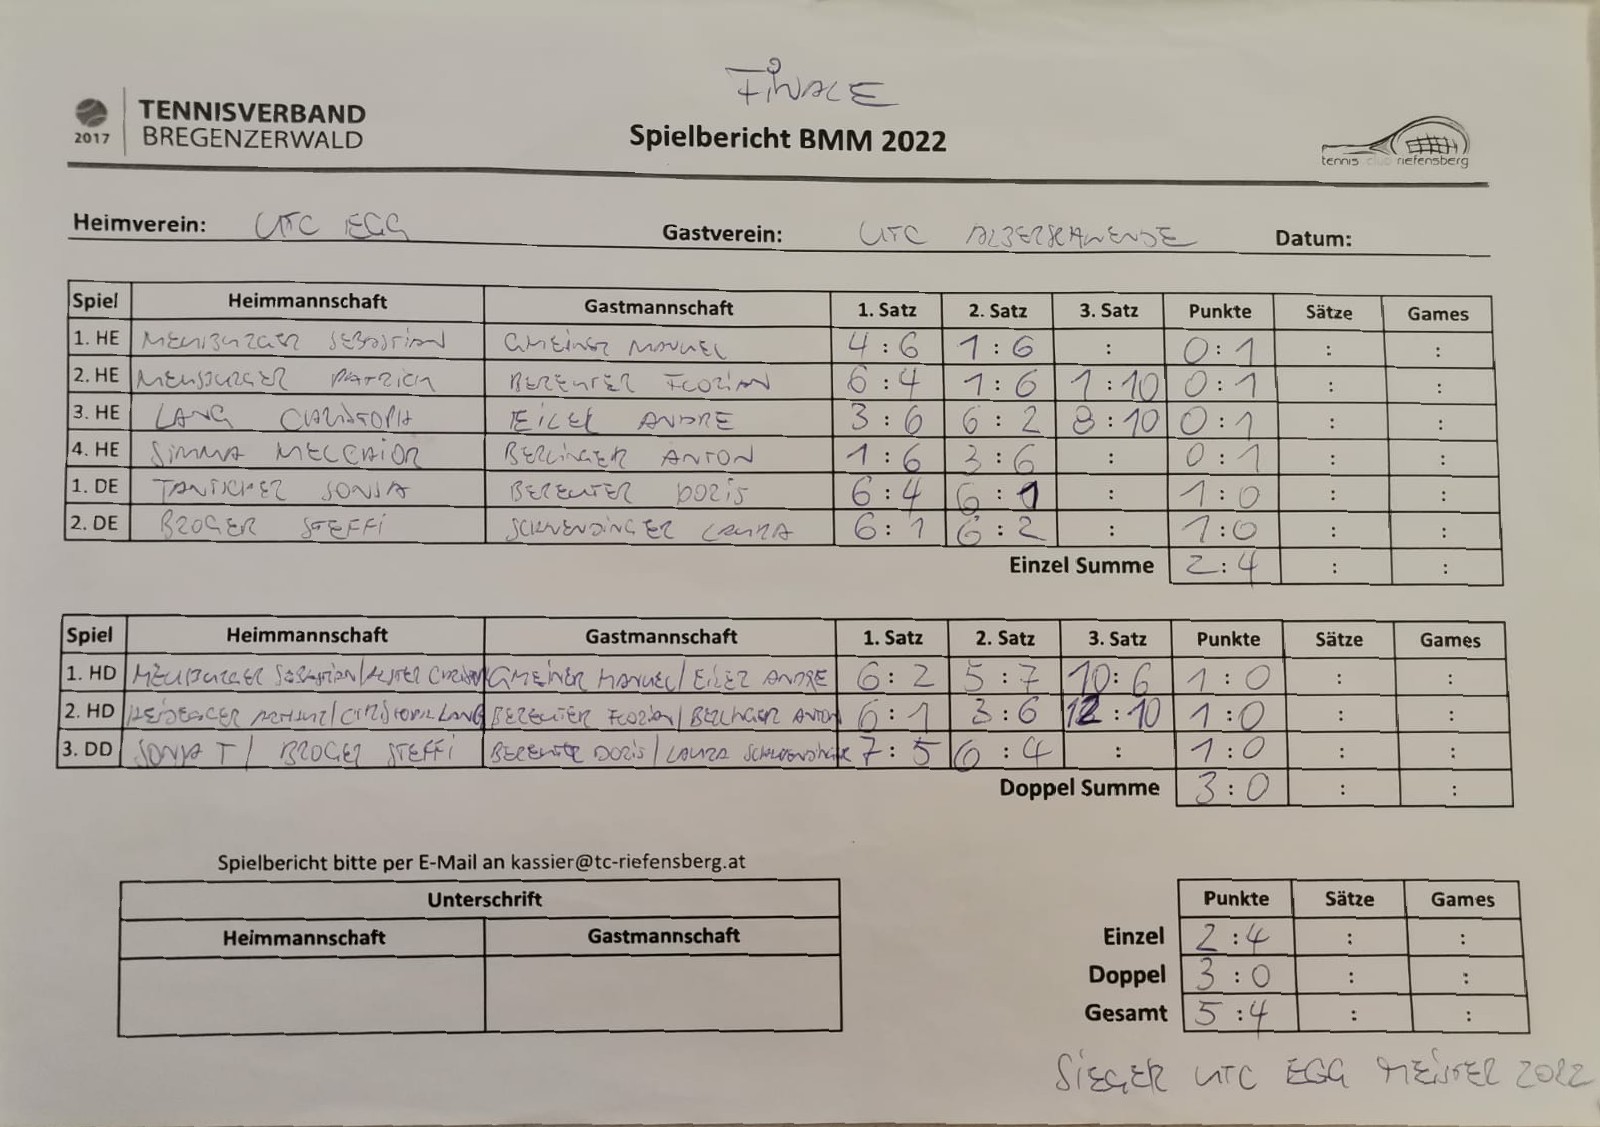 FINALE
TENNISVERBAND
2017 BREGENZERWALD
Spielbericht BMM 2022
tennis club riefensberg
Heimverein: UTC EGG Gastverein: UTC ALBERSCHWENDE Datum:
Spiel Heimmannschaft Gastmannschaft 1. Satz 2. Satz 3. Satz Punkte Sätze Games
1. HE MEUSBURGER SEBASTIAN GMEINER MANUEL 4 : 6 1 : 6 : 0 : 1 : :
2. HE MEUSBURGER PATRICK BEREUTER FLORIAN 6 : 4 1 : 6 1 : 10 0 : 1 : :
3. HE LANG CHRISTOPH EILER ANDRE 3 : 6 6 : 2 8 : 10 0 : 1 : :
4. HE SIMMA MELCHIOR BERLINGER ANTON 1 : 6 3 : 6 : 0 : 1 : :
1. DE SONJA BEREUTER DORIS 6 : 4 6 : 1 : 1 : 0 : :
2. DE BROGER STEFFI SCHWENDINGER LAURA 6 : 1 6 : 2 : 1 : 0 : :
Einzel Summe 2 : 4 : :
Spiel Heimmannschaft Gastmannschaft 1. Satz 2. Satz 3. Satz Punkte Sätze Games
1. HD MEUSBURGER SEBASTIAN/ GMEINER MANUEL/ EILER ANDRE 6 : 2 5 : 7 10 : 6 1 : 0 : :
2. HD /CHRISTOPH LANG BEREUTER FLORIAN/ BERLINGER ANTON 6 : 1 3 : 6 12 : 10 1 : 0 : :
3. DD SONJA T/ BROGER STEFFI BEREUTER DORIS/ LAURA SCHWENDINGER 7 : 5 6 : 4 : 1 : 0 : :
Doppel Summe 3 : 0 : :
Spielbericht bitte per E-Mail an kassier@tc-riefensberg.at
Unterschrift
Heimmannschaft Gastmannschaft
Punkte Sätze Games
Einzel 2 : 4 : :
Doppel 3 : 0 : :
Gesamt 5 : 4 : :
SIEGER UTC EGG MEISTER 2022